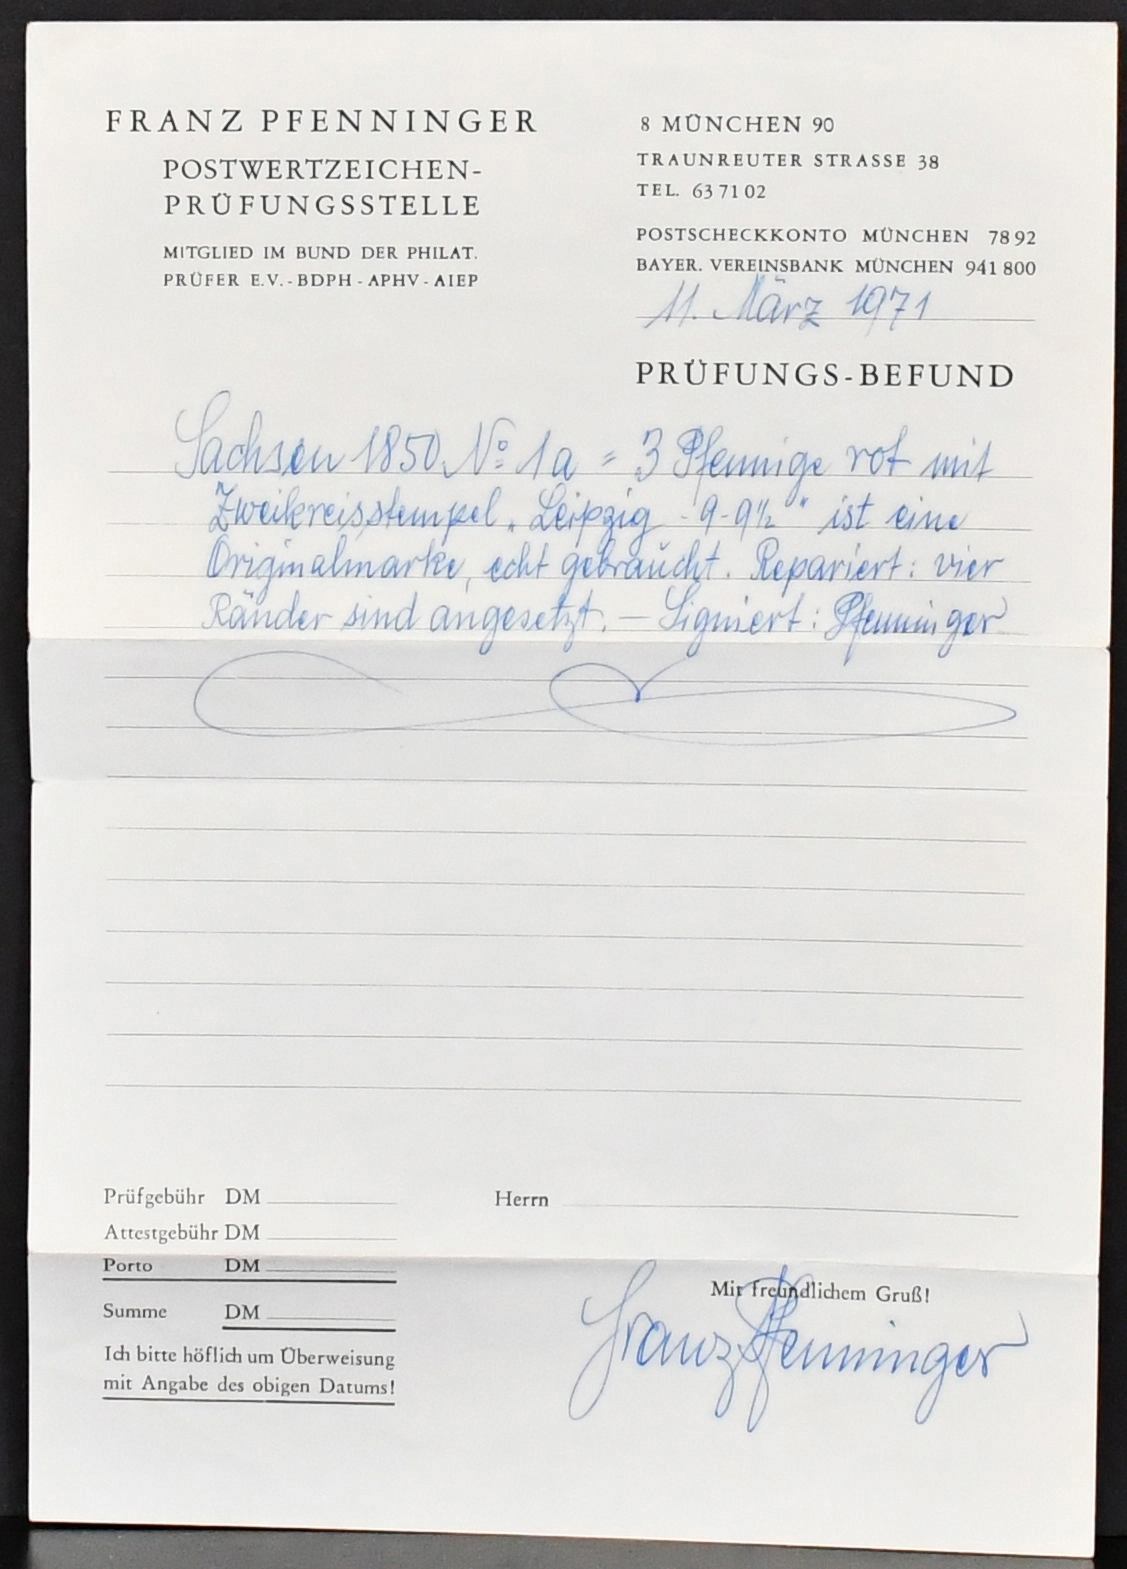 FRANZ PFENNINGER
POSTWERTZEICHEN-
PRÜFUNGSSTELLE
MITGLIED IM BUND DER PHILAT.
PRÜFER E.V.-BDPH-APHV-AIEP
8 MÜNCHEN 90
TRAUNREUTER STRASSE 38
TEL. 63 71 02
POSTSCHECKKONTO MÜNCHEN 78 92
BAYER. VEREINSBANK MÜNCHEN 941 800
11. März 1971
PRÜFUNGS-BEFUND
Sachsen 1850 No 1a = 3 Pfennige rot mit
Zweikreisstempel „Leipzig -9-9½" ist eine
Originalmarke, echt gebraucht. Repariert: vier
Ränder sind angesetzt. — Signiert: Pfenninger
Prüfgebühr DM
Attestgebühr DM
Porto DM
Summe DM
Ich bitte höflich um Überweisung
mit Angabe des obigen Datums!
Herrn
Mit freundlichem Gruß!
Franz Pfenninger